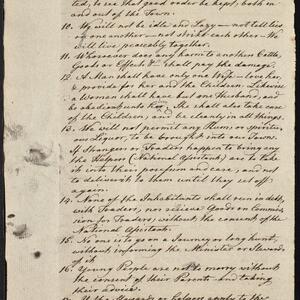 ted, to see that good order be kept, both in
and out of the Town.
10. We will not be idle and Lazy — not tell lies
of one another — not strike each other — We
will live peaceably together.
11. Whosoever does any harm to another's Cattle,
Goods or Effects &c. shall pay the damage.
12. A Man shall have only one Wife — love her, &
provide for her and the Children. Likewise
a Woman shall have but one Husband, and
be obedient unto him. She shall also take care
of the Children, and be cleanly in all things.
13. We will not permit any Rum, or spiritu-
ous Liquor, to be brought into our Towns.
If Strangers or Traders happen to bring any
the Helpers (National Assistants) are to take
it into their possession and care, and not
to deliver it to them until they set off
again.
14. None of the Inhabitants shall run in debt
with Traders, nor receive Goods on Commis-
sion for Traders, without the consent of the
National Assistants.
15. No one is to go on a Journey or long hunt,
without informing the Minister or Stewards
of it
16. Young People are not to marry without
the consent of their Parents — and taking
their advice.
17. If the Stewards or Helpers apply to the